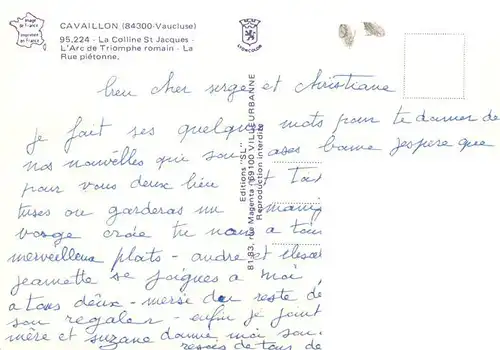 Image de France
imprimée en France
CAVAILLON (84300-Vaucluse)
95.224 - La Colline St Jacques -
L'Arc de Triomphe romain - La
Rue piétonne.
LYONCOLOR
Editions "S.L."
81-83, rue Magenta - 69100 VILLEURBANNE
Reproduction interdite
bien cher serge et christiane
je fait ses quelques mots pour te donner de
nos nouvelles qui sont ases bonne jespere que
pour vous deux bien et
ou garderas un
voage croie tu nous a tous
merveilleux plats - andre et
jeanette se joignes a moi
a tous deux - mersi du reste de
son regaler - enfin je joint
mère et suzane donne moi son
de tous de